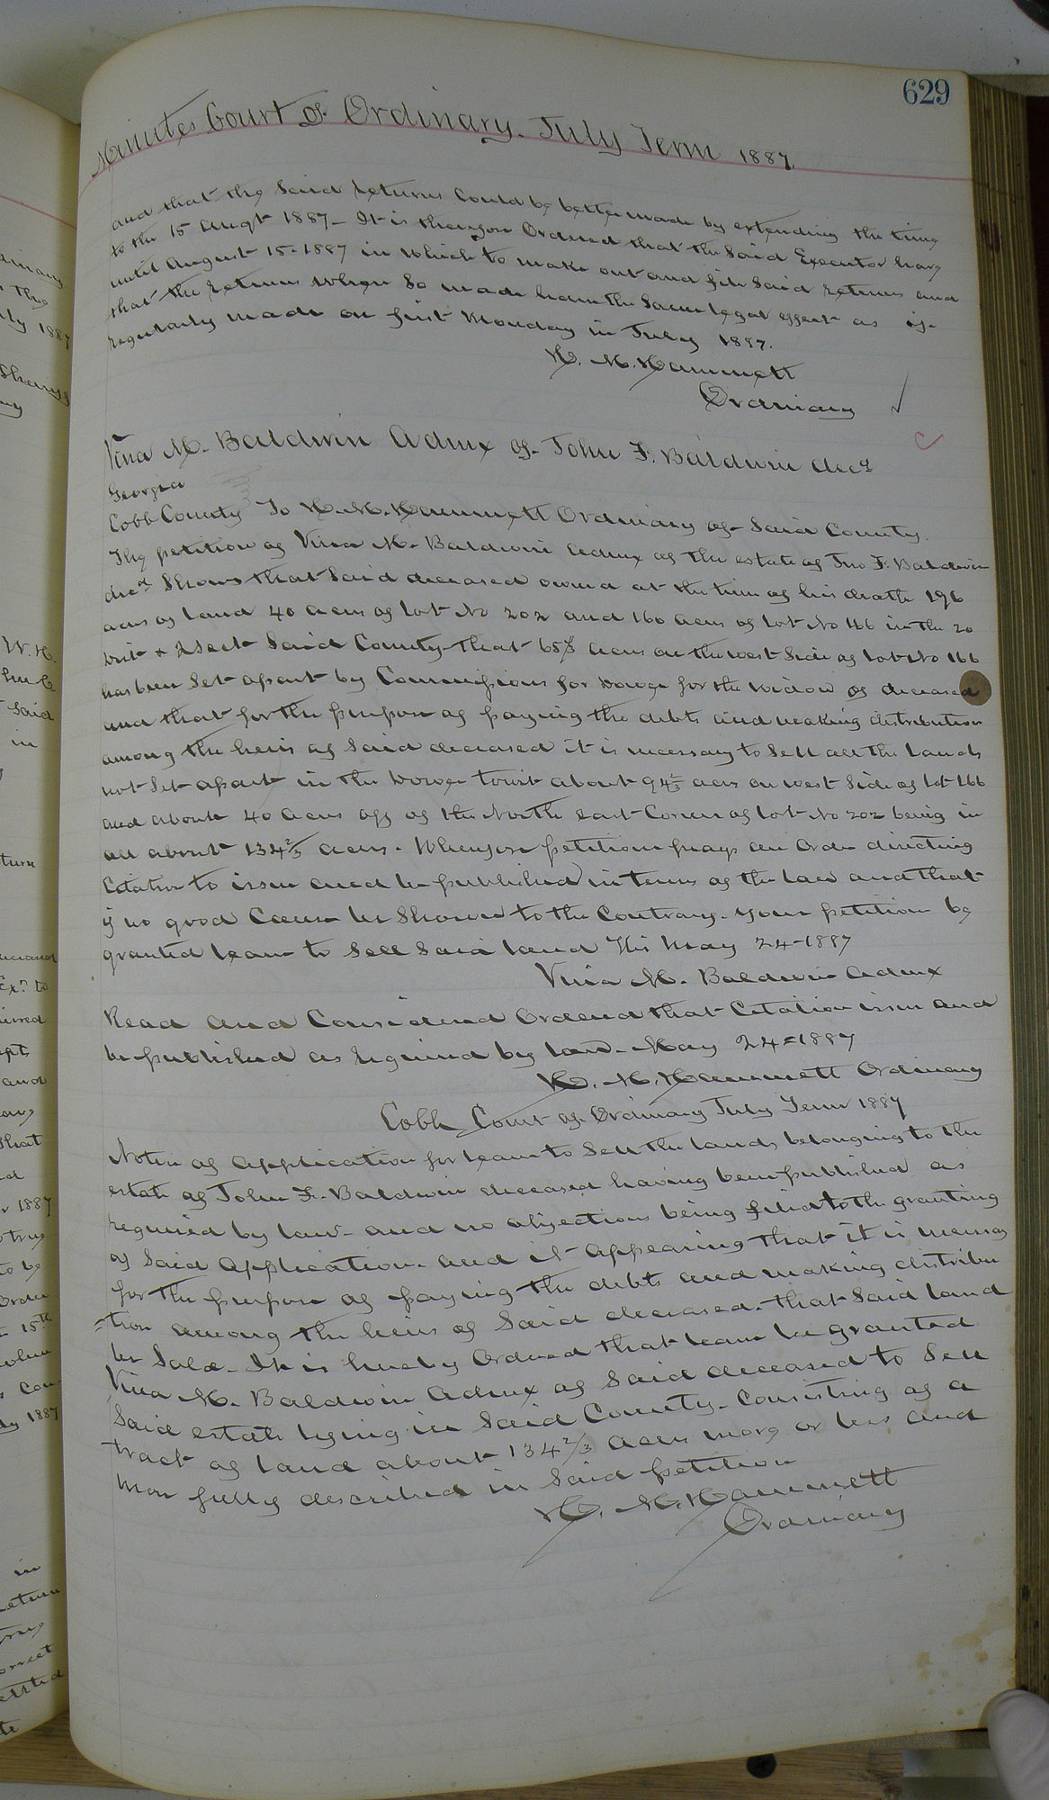 629
Minutes Court of Ordinary. July Term 1887.
and that the said returns could be better made by extending the time
to the 15 Augt 1887 - It is therefore Ordered that the said Executor have
until August 15-1887 in which to make out and file said returns and
that the returns when so made have the same legal effect as if
regularly made on first Monday in July 1887.
H. M. Hammett
Ordinary ✓
Vina M. Baldwin Admx of John F. Baldwin decd
Georgia
Cobb County To H. M. Hammett Ordinary of said County.
The petition of Vina M. Baldwin admx of the estate of Jno F. Baldwin
decd Shows that said deceased owned at the time of his death 196
acres of land 40 acres of lot No 202 and 160 acres of lot No 166 in the 20
Dist & 2 Sect Said County that 65⅓ acres on the west side of lot No 166
has been set apart by Commissioners for dower for the widow of deceased
and that for the purpose of paying the debts and making distribution
among the heirs of said deceased it is necessary to sell all the lands
not set apart in the dower towit about 94⅔ acres on west side of lot 166
and about 40 acres off of the North east Corner of lot No 202 being in
all about 134⅔ acres. Wherefore petition prays an Order directing
Citation to issue and be published in terms of the law and that
if no good Cause be shown to the Contrary. your petition be
granted leave to sell said land This May 24-1887
Vina M. Baldwin Admx
Read and Considered Ordered that Citation issue and
be published as required by law - May 24-1887
H. M. Hammett Ordinary
Cobb Court of Ordinary July Term 1887
Notice of application for leave to sell the lands belonging to the
estate of John F. Baldwin deceased having been published as
required by law - and no objections being filed to the granting
of said application - and it appearing that it is necessary
for the purpose of paying the debts and making distribu
=tion among the heirs of said deceased. that said land
be sold - It is hereby Ordered that leave be granted
Vina M. Baldwin Admx of said deceased to sell
said estate lying in said County - Consisting of a
tract of land about 134⅔ acres more or less and
more fully described in said petition
H. M. Hammett
Ordinary